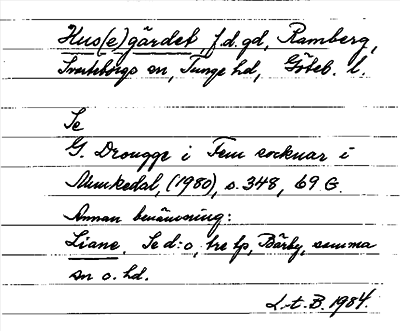 Hus(e)gärdet, f.d. gd, Ramberg,
Svarteborgs sn, Tunge hd, Göteb. l.
Se
G. Drougge i Fem socknar i
Munkedal, (1980), s. 348, 69 G.
Annan benämning:
Liane. Se d:o, hre lp, Bärby, samma
sn o. hd.
L-t. B. 1984.